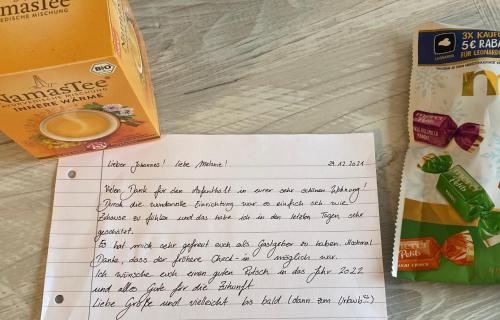 NamasTee
AYURVEDISCHE MISCHUNG
BIO
NamasTee
AYURVEDISCHE MISCHUNG
INNERE WÄRME
3X KAUFEN
5€ RABATT
FÜR LEONARDO
LEONARDO
merci
Petits
merci
Petits
Lieber Johannes! liebe Melanie! 29.12.2021
Vielen Dank für den Aufenthalt in eurer sehr schönen Wohnung!
Durch die wundervolle Einrichtung war es einfach sich wie
Zuhause zu fühlen und das habe ich in den letzten Tagen sehr
geschätzt.
Es hat mich sehr gefreut euch als Gastgeber zu haben. Nochmal
Danke, dass der frühere Check-in möglich war.
Ich wünsche euch einen guten Rutsch in das Jahr 2022
und alles Gute für die Zukunft
Liebe Grüße und vielleicht bis bald (dann zum Urlaub)